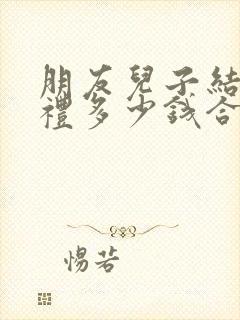 朋友兒子結
禮多少錢合
惕若